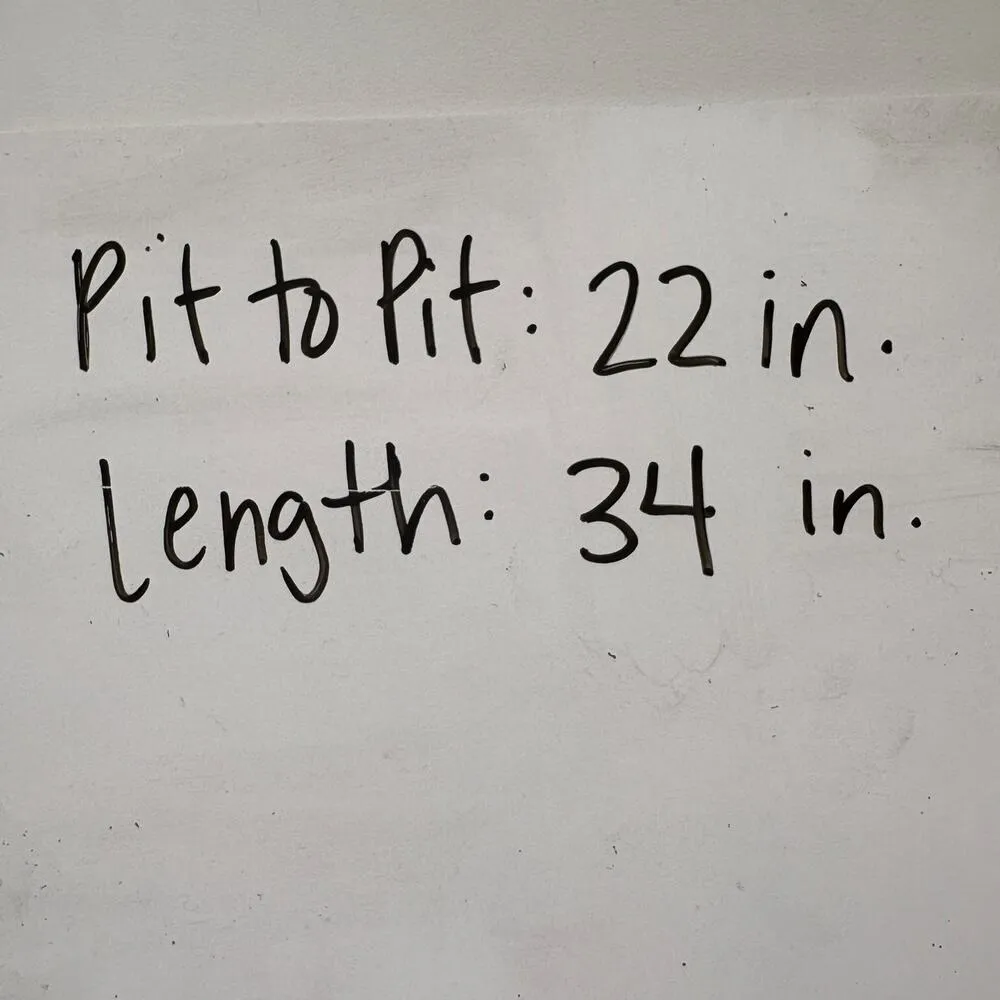 Pit to Pit: 22 in.
Length: 34 in.